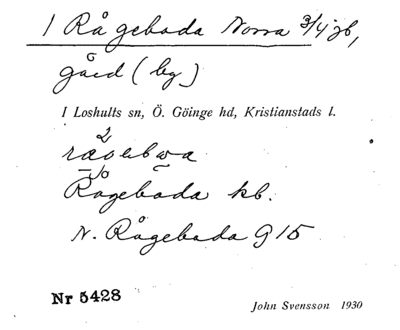 1 Rågeboda Norra 3/4 jb,
gård (by)
I Loshults sn, Ö. Göinge hd, Kristianstads l.
Rågeboda kb.
N. Rågeboda G 15
Nr 5428
John Svensson 1930